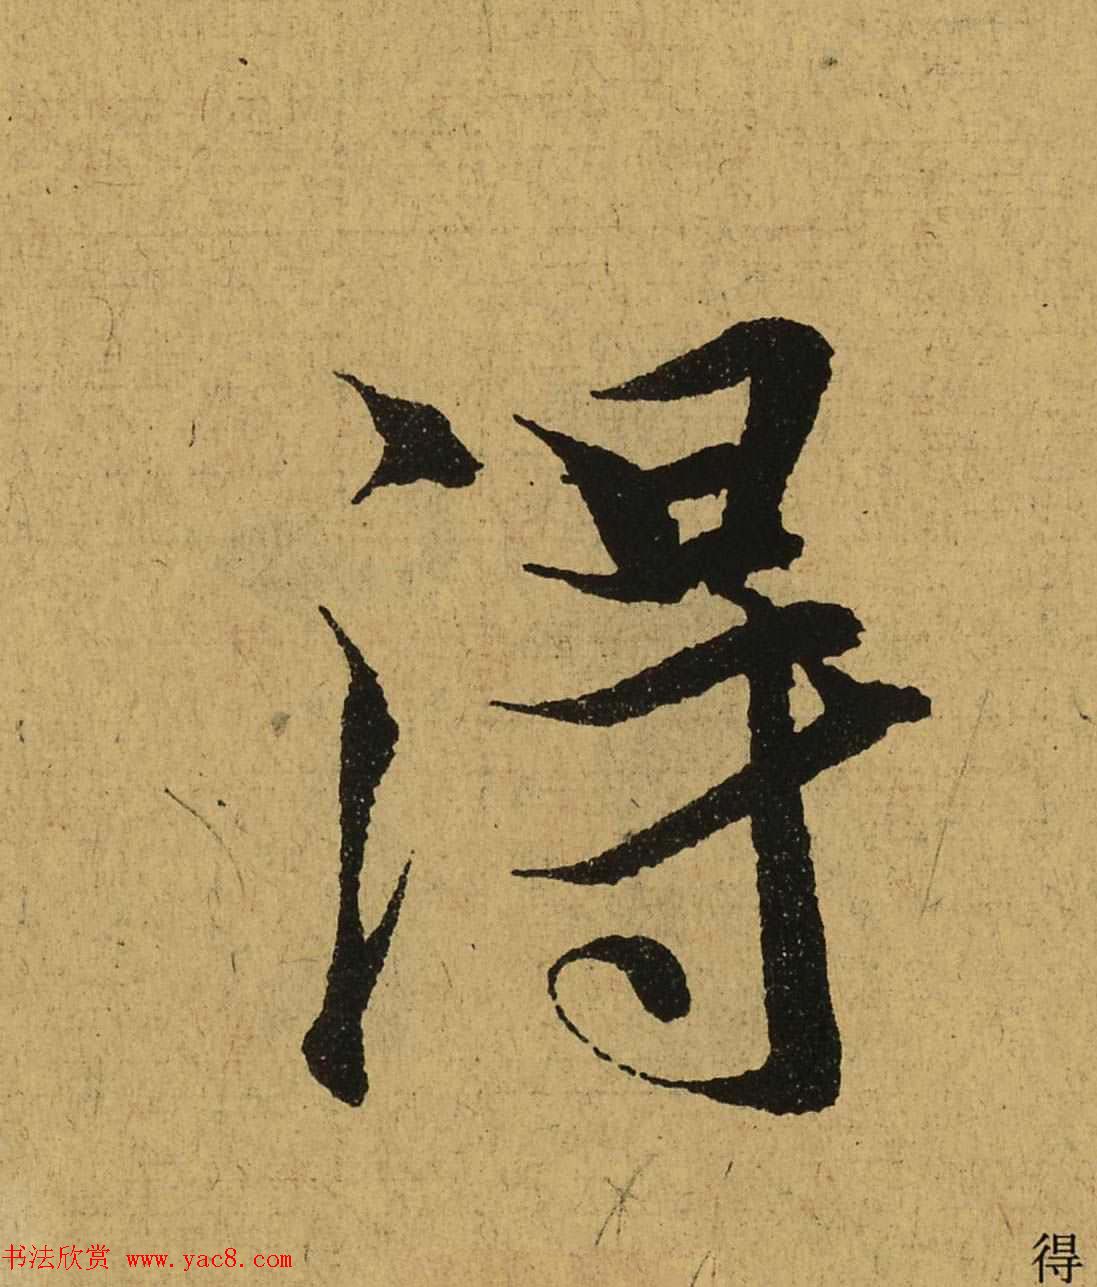 得
书法欣赏 www.yac8.com
得